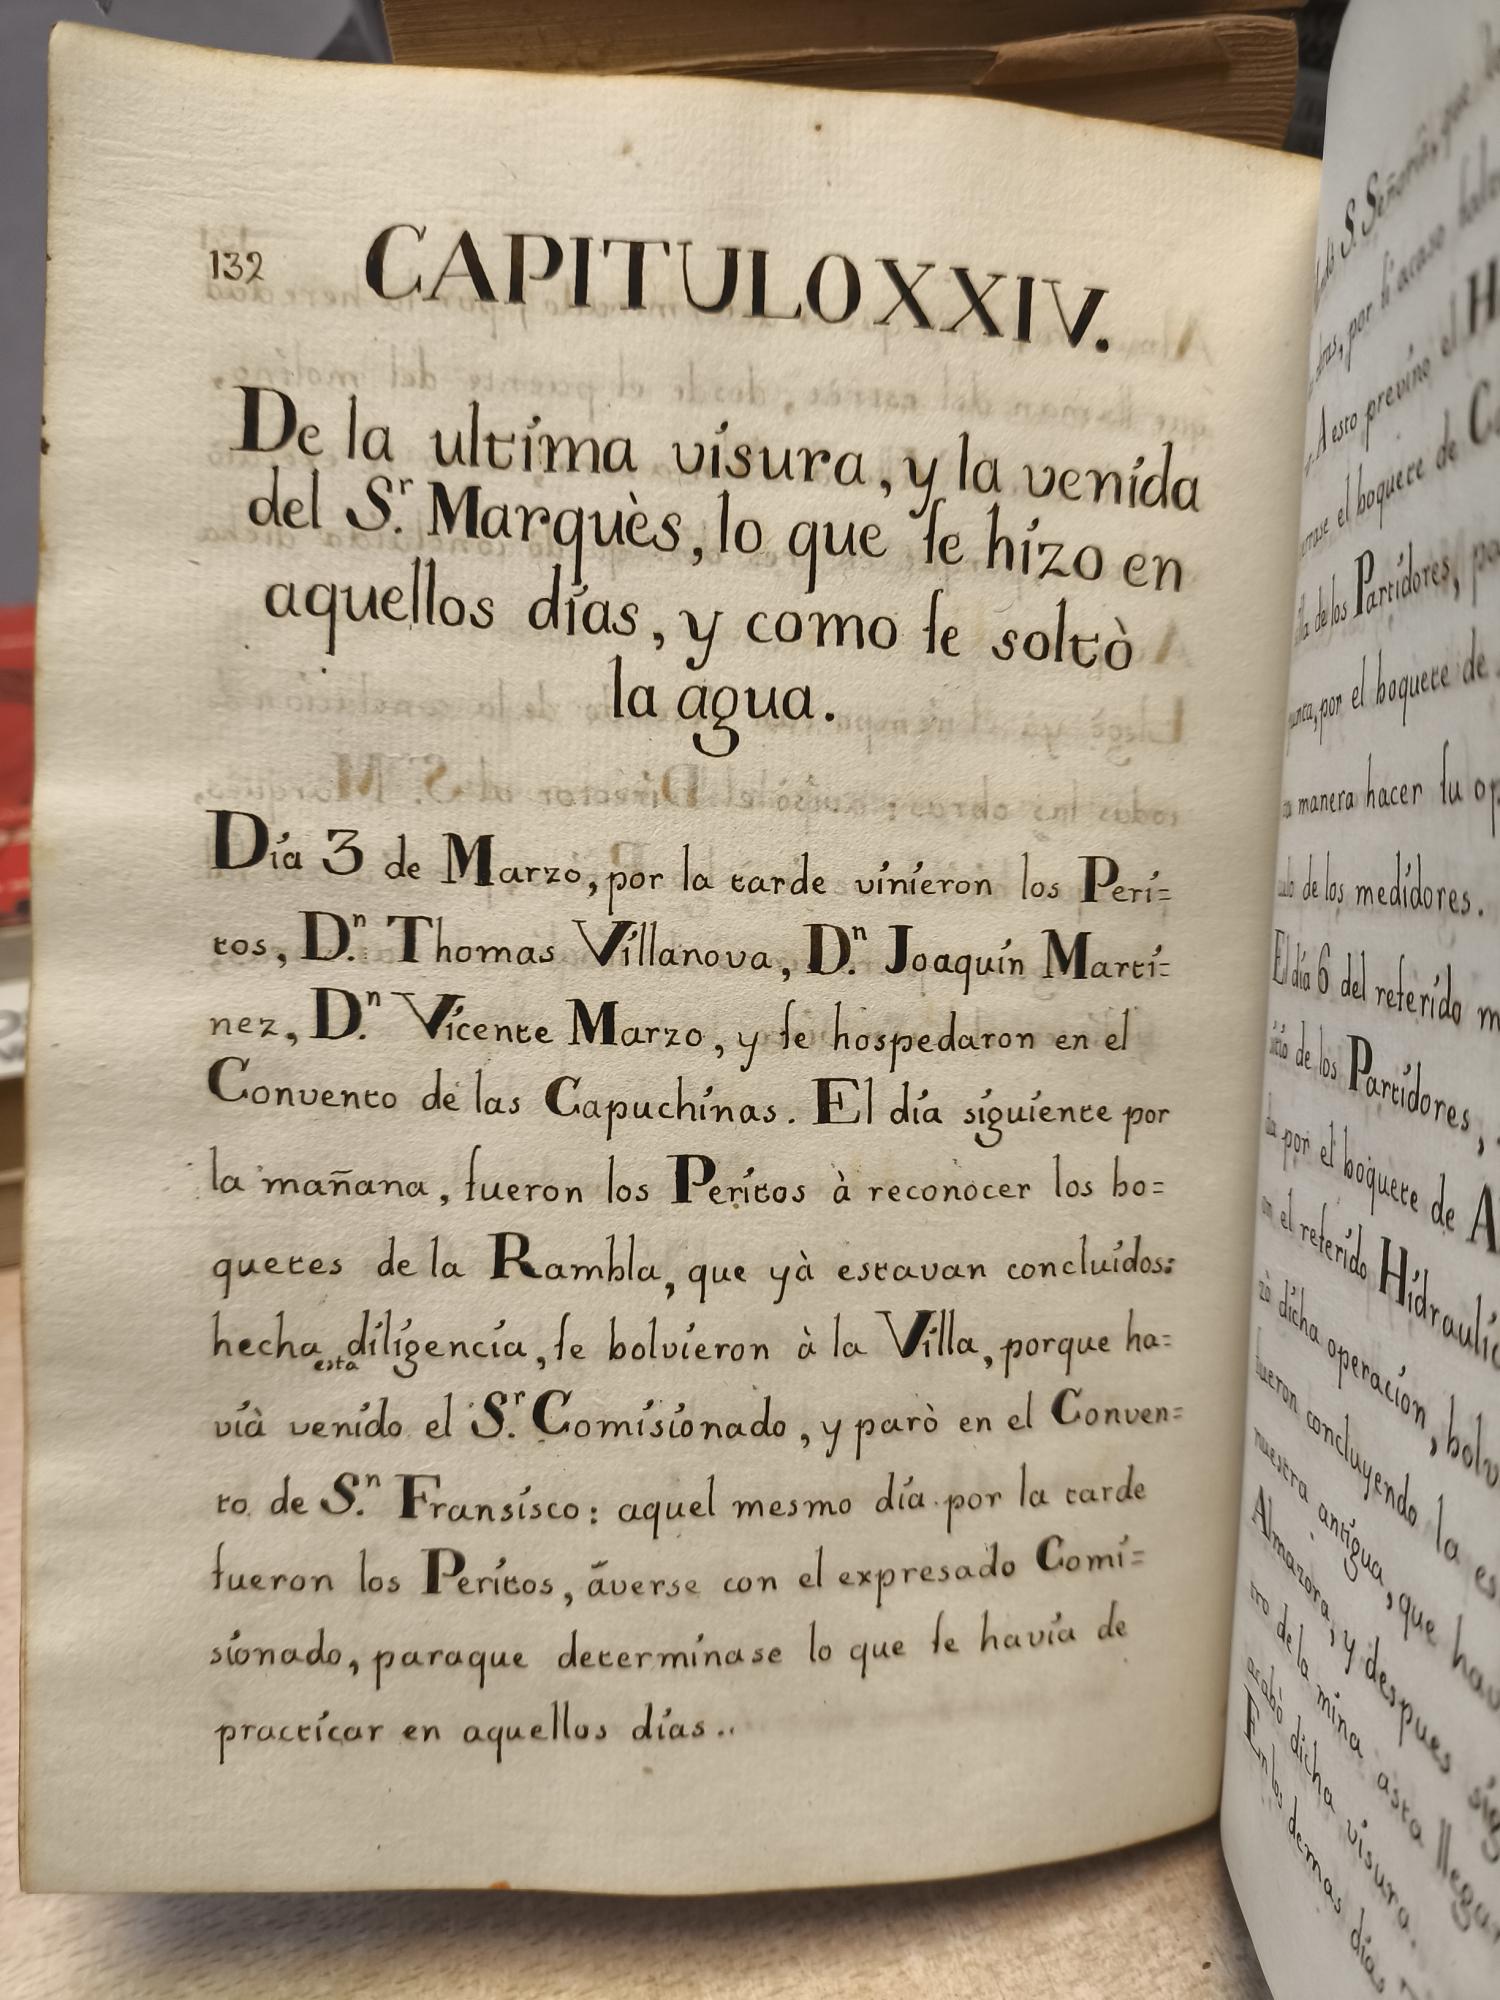 132 CAPITULO XXIV.
De la ultima visura, y la venida
del S.r Marquès, lo que se hizo en
aquellos días, y como se soltò
la agua.
Día 3 de Marzo, por la tarde vinieron los Peri=
tos, D.n Thomas Villanova, D.n Joaquin Marti=
nez, D.n Vicente Marzo, y se hospedaron en el
Convento de las Capuchinas. El día siguiente por
la mañana, fueron los Peritos à reconocer los bo=
quetes de la Rambla, que yà estavan concluidos:
hecha esta diligencia, se bolvieron à la Villa, porque ha=
vià venido el S.r Comisionado, y parò en el Conven=
to de S.n Fransisco: aquel mesmo día por la tarde
fueron los Peritos, áverse con el expresado Comi=
sionado, paraque determinase lo que se havía de
practicar en aquellos días..
S. Señoria, que
por si acaso
A esto previno el
el boquete de
de los Partidores,
por el boquete de
manera hacer su
de los medidores.
El día 6 del referido
de los Partidores,
por el boquete de
el referido Hidraulic
dicha operacion, bolv
fueron concluyendo la es
nuestra antigua, que hav
Almazora, y despues sig
de la mina asta llegar
acabò dicha visura.
En los demas días